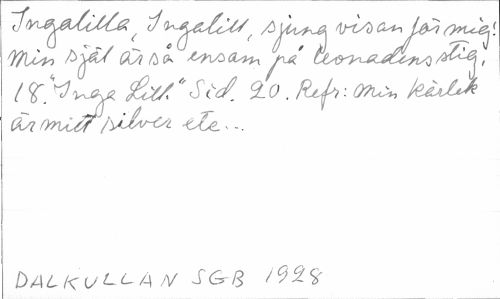 Ingalilla, Ingalill, sjung visan för mig!
Min själ är så ensam på levnadens stig.
18. "Inga Lill." Sid. 20. Refr: Min kärlek
är mitt silver etc...
DALKULLAN SGB 1928